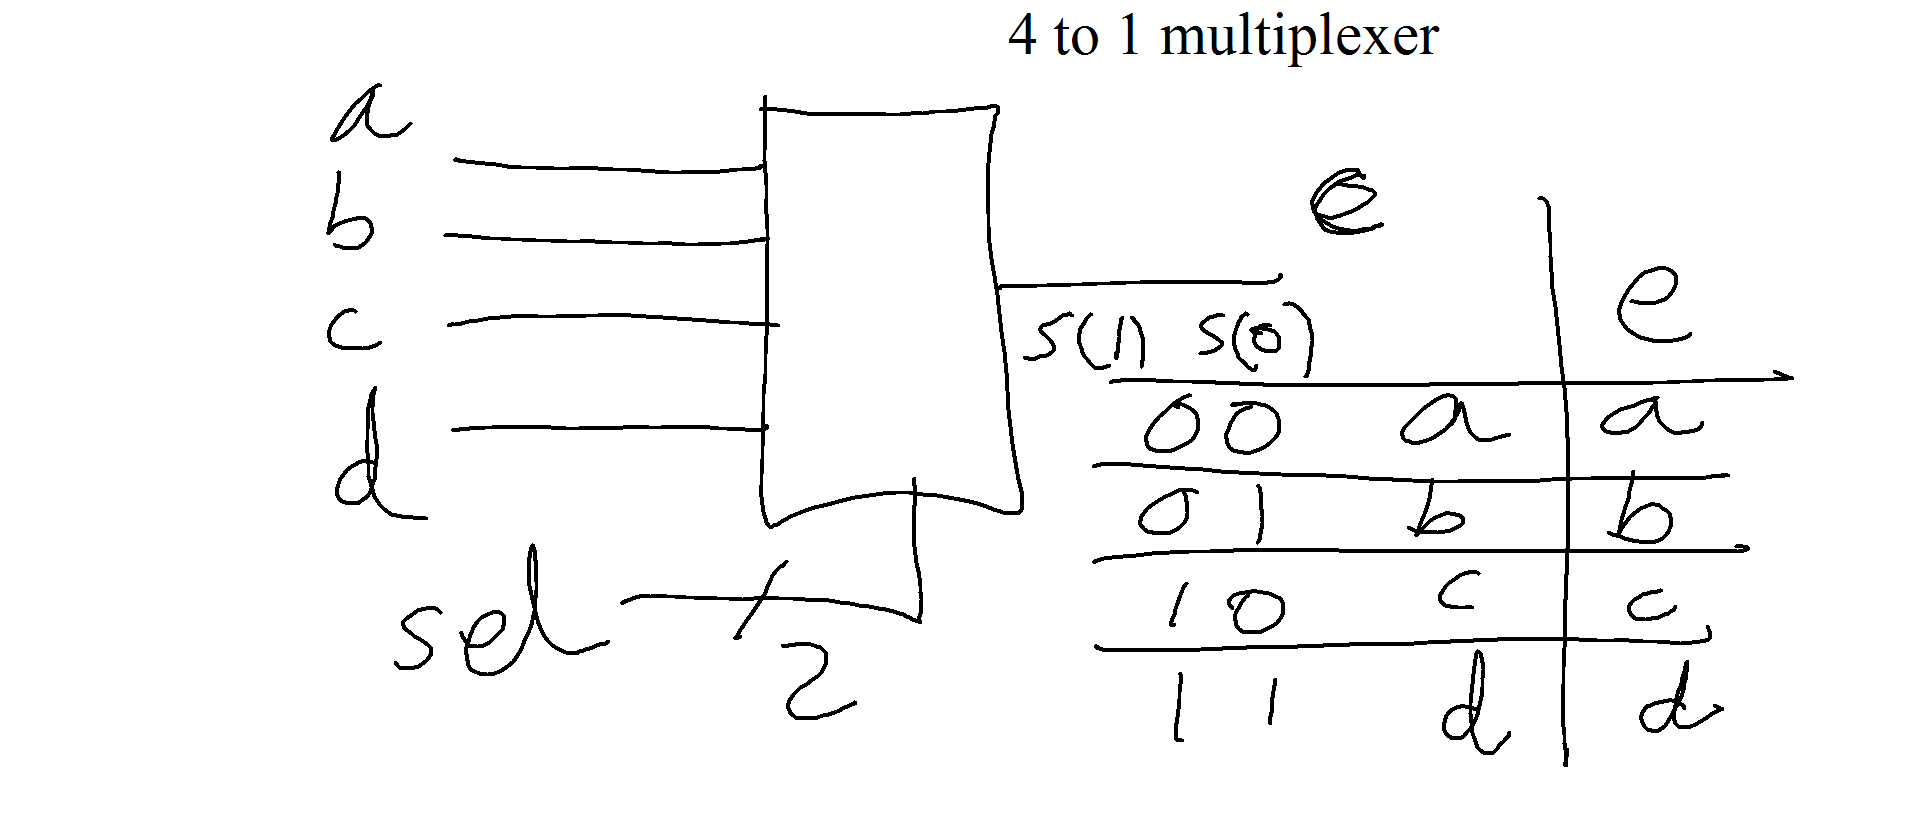 4 to 1 multiplexer
a
b
c
d
sel
2
e
s(1) s(0) e
00 a a
01 b b
10 c c
11 d d